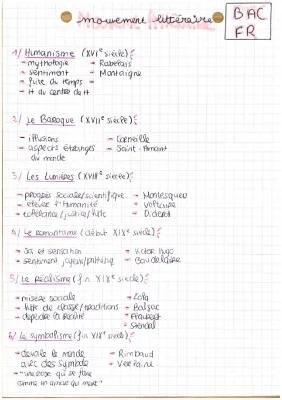 mouvement littéraire
BAC
FR
1/ Humanisme (XVIe siècle):
→ mythologie → Rabelais
→ sentiment → Montaigne
→ fuite du temps →
→ H au centre de H
2/ Le Baroque (XVIIe siècle):
- illusions → Corneille
→ aspects étranges → Saint-Amant
du monde
3/ Les Lumières (XVIIIe siècle):
→ progrès sociale/scientifique → Montesquieu
→ élever l'humanité → Voltaire
→ tolérance/justice/lutte → Diderot
4/ Le romantisme (début XIXe siècle):
→ et sensation → Victor Hugo
→ sentiment joyeux/ → Baudelaire
5/ Le Réalisme (fin XIXe siècle):
→ misère sociale → Zola
→ lutte de classe/traditions → Balzac
→ la réalité → Flaubert
→ Stendal
6/ Le symbolisme (fin XIXe siècle):
→ le monde → Rimbaud
avec des symbole → Verlaine
→ "une rose qui se fane
comme un amour qui meurt"